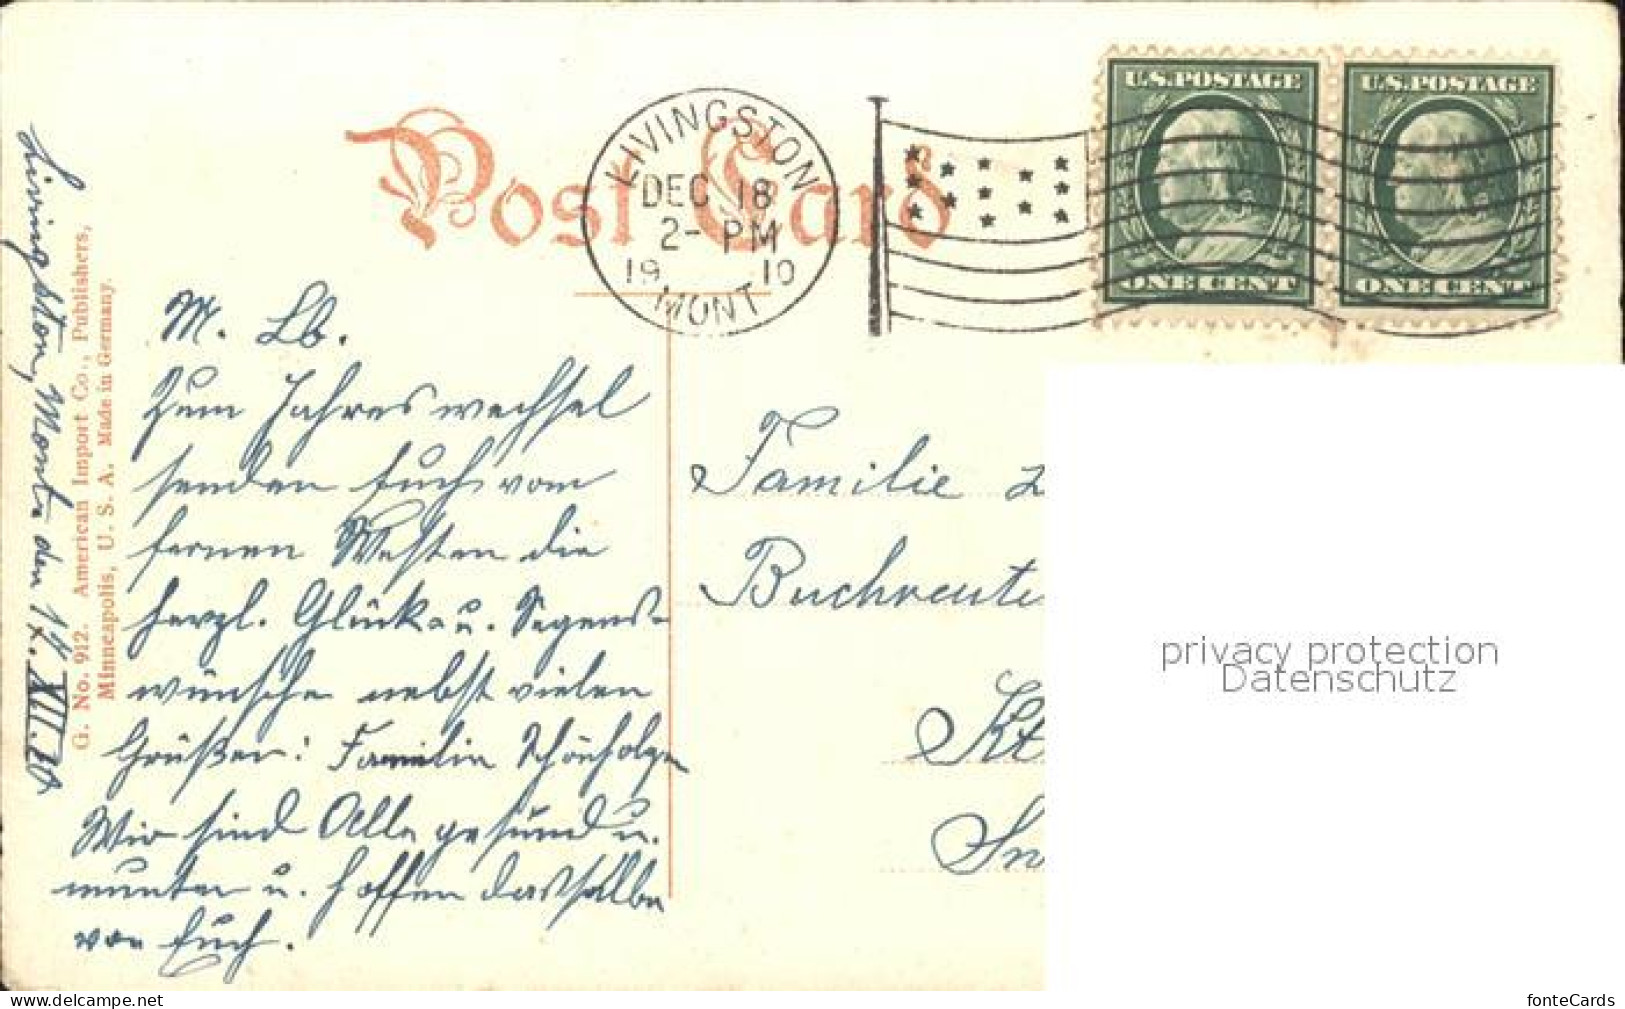 Post Card
LIVINGSTON
DEC 18
2- PM
19 10
MONT
U.S.POSTAGE
ONE CENT
U.S.POSTAGE
ONE CENT
Livingston, Mont. den 17. XII. 10
G. No. 912. American Import Co., Publishers,
Minneapolis, U. S. A. Made in Germany.
M. Lb.
Zum Jahreswechsel
senden Euch vom
fernen Westen die
herzl. Glück- u. Segens-
wünsche nebst vielen
Grüßen: Familie
Wir sind Alle gesund u.
munter u. hoffen dasselbe
von Euch.
Familie
Buchreute
St
privacy protection
Datenschutz
www.delcampe.net
fonteCards